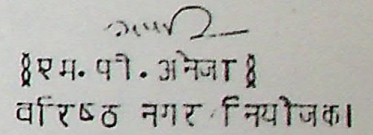 (एम. पी. अनेजा)
वरिष्ठ नगर नियोजक।